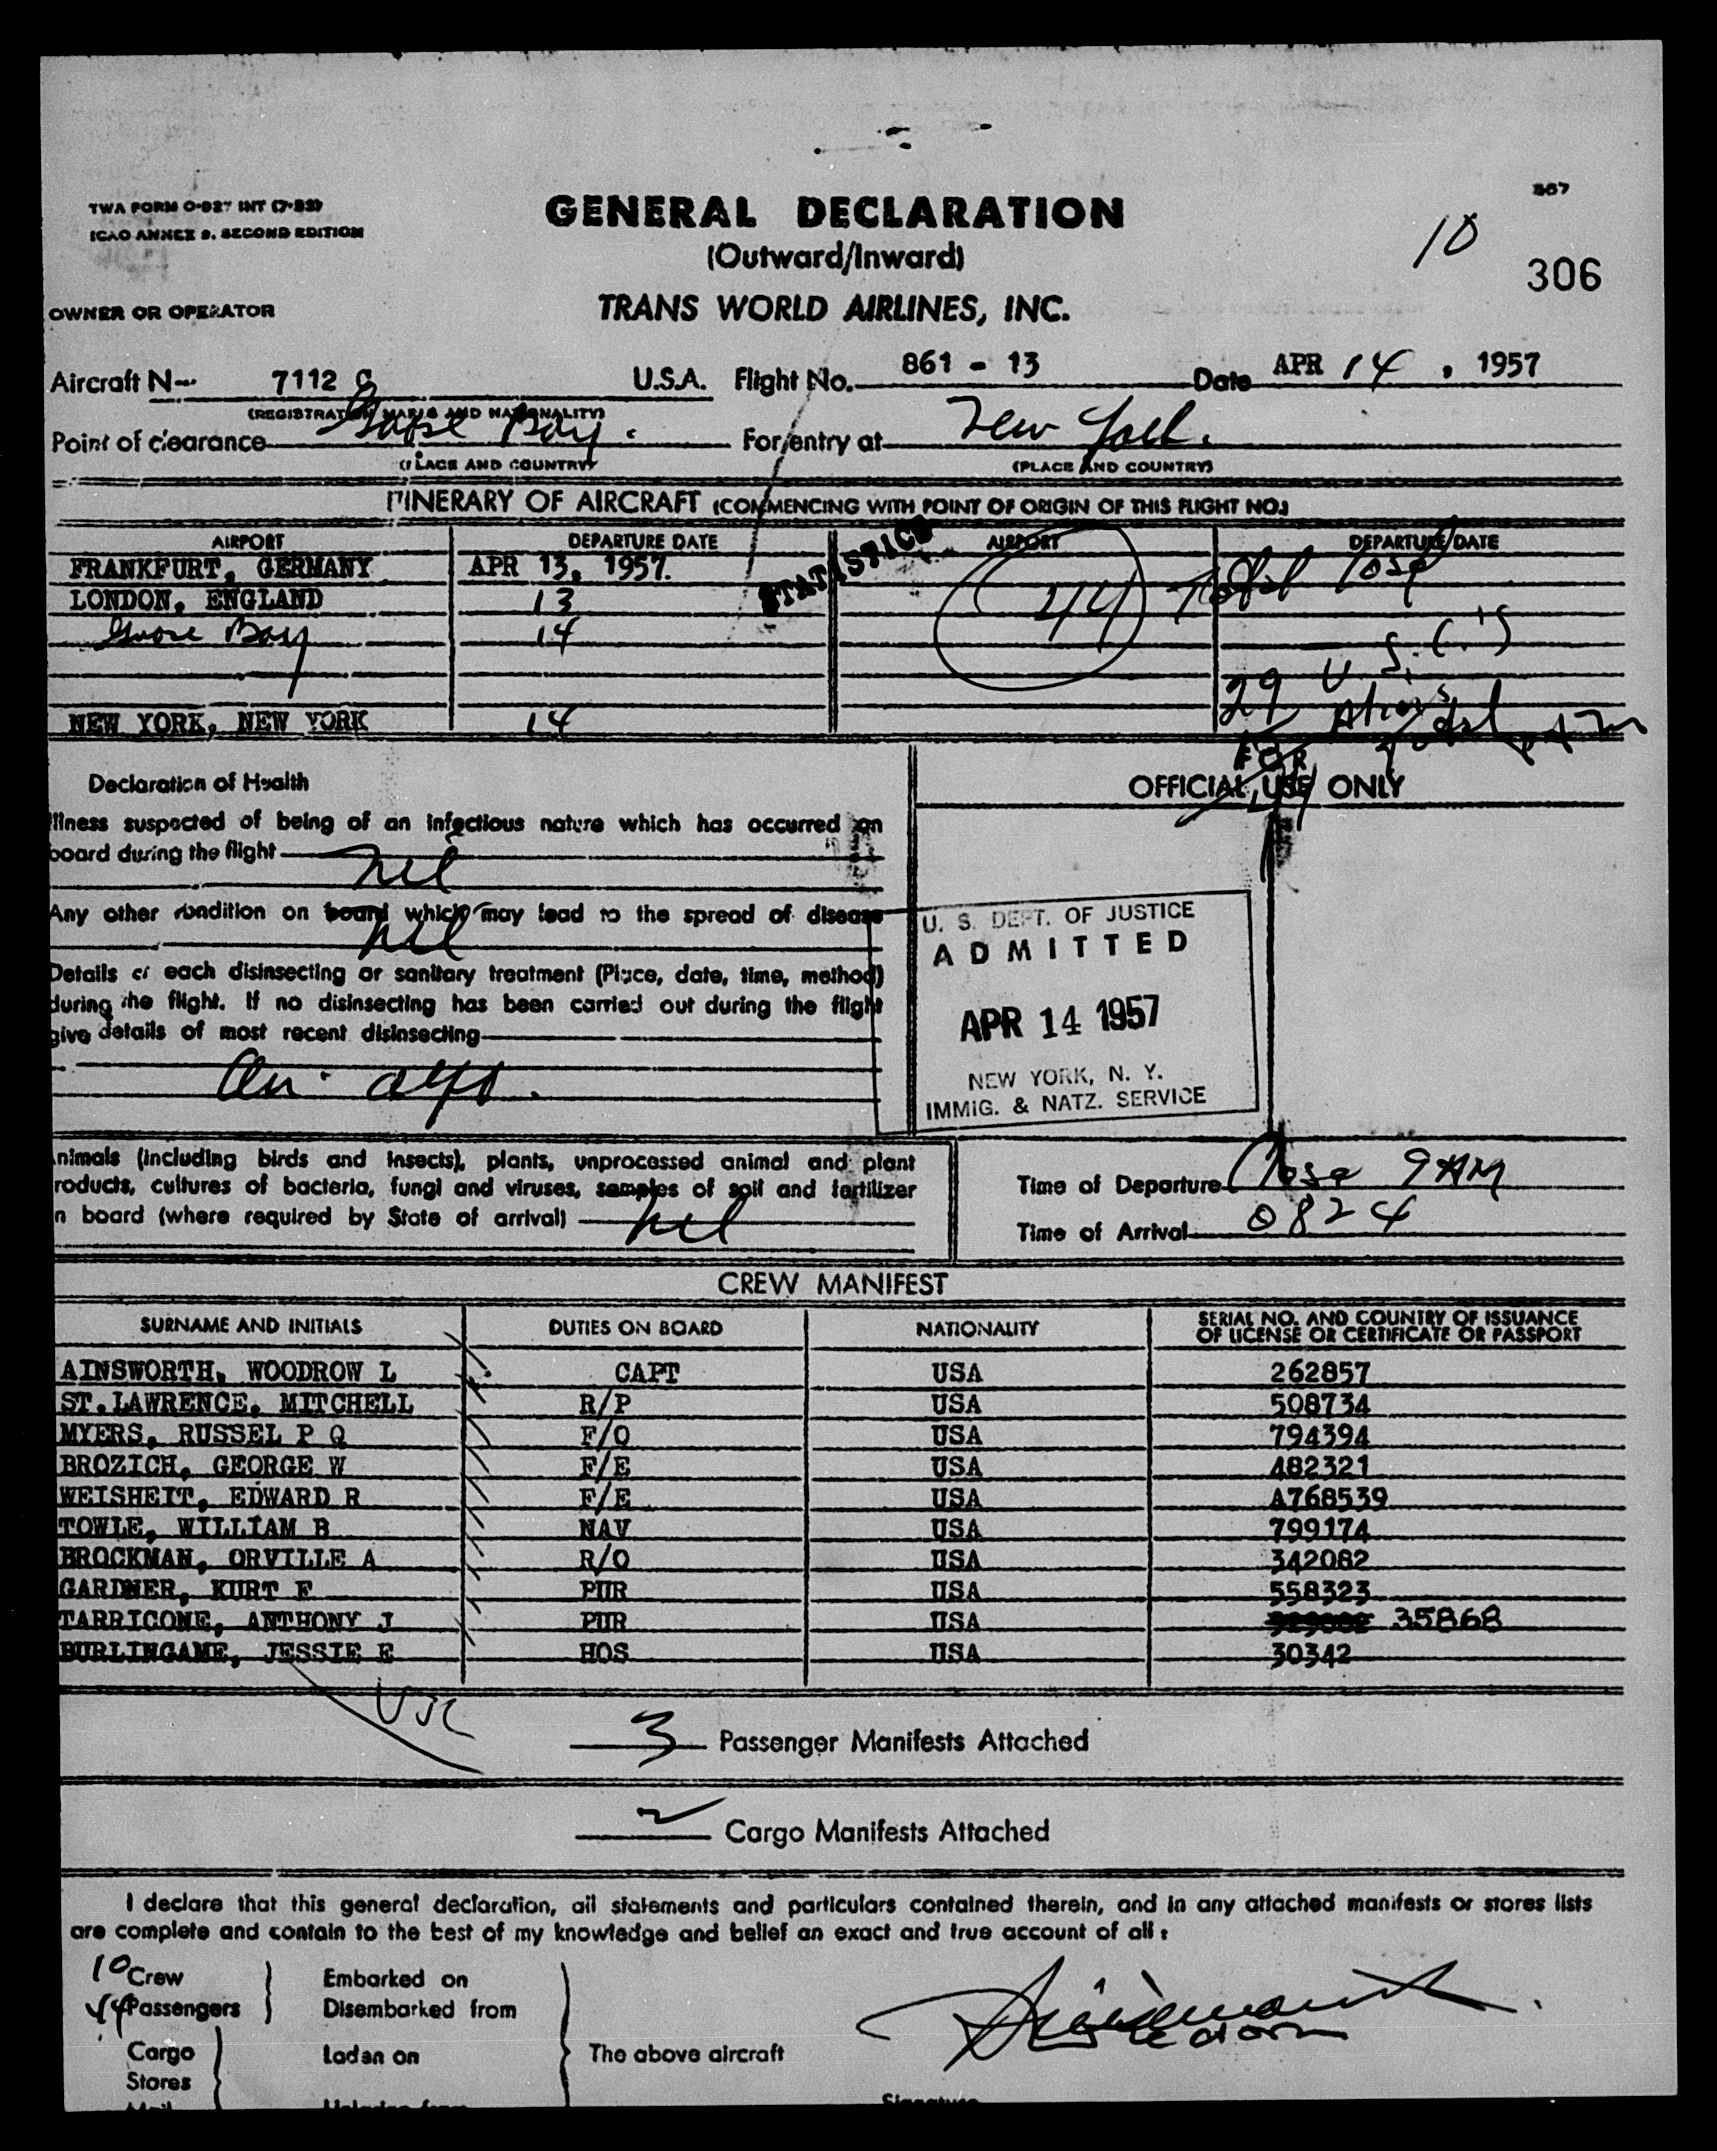 867
TWA FORM O-927 INT (7-53)
ICAO ANNEX 9, SECOND EDITION
GENERAL DECLARATION
(Outward/Inward)
10
306
OWNER OR OPERATOR
TRANS WORLD AIRLINES, INC.
Aircraft N— 7112 C U.S.A. Flight No. 861 - 13 Date APR 14, 1957
(REGISTRATION MARKS AND NATIONALITY)
Point of clearance Goose Bay. For entry at New York.
(PLACE AND COUNTRY) (PLACE AND COUNTRY)
ITINERARY OF AIRCRAFT (COMMENCING WITH POINT OF ORIGIN OF THIS FLIGHT NO.)
AIRPORT DEPARTURE DATE AIRPORT DEPARTURE DATE
STATISTICS
FRANKFURT, GERMANY APR 13, 1957.
LONDON, ENGLAND 13
44
Goose Bay 14
U.S.C.'S
29
NEW YORK, NEW YORK 14
Declaration of Health
FOR
OFFICIAL USE ONLY
Illness suspected of being of an infectious nature which has occurred on
board during the flight
nil
Any other condition on board which may lead to the spread of disease
nil
Details of each disinsecting or sanitary treatment (Place, date, time, method)
during the flight. If no disinsecting has been carried out during the flight
give details of most recent disinsecting
U. S. DEPT. OF JUSTICE
ADMITTED
APR 14 1957
NEW YORK, N. Y.
IMMIG. & NATZ. SERVICE
nimals (including birds and insects), plants, unprocessed animal and plant
roducts, cultures of bacteria, fungi and viruses, samples of soil and fertilizer
n board (where required by State of arrival) nil
Time of Departure Close 9 AM
Time of Arrival 0824
CREW MANIFEST
SURNAME AND INITIALS DUTIES ON BOARD NATIONALITY SERIAL NO. AND COUNTRY OF ISSUANCE
OF LICENSE OR CERTIFICATE OR PASSPORT
AINSWORTH, WOODROW L CAPT USA 262857
ST.LAWRENCE, MITCHELL R/P USA 508734
MYERS, RUSSEL P Q F/O USA 794394
BROZICH, GEORGE W F/E USA 482321
WEISHEIT, EDWARD R F/E USA A768539
TOWLE, WILLIAM B NAV USA 799174
BROCKMAN, ORVILLE A R/O USA 342082
GARDNER, KURT F PUR USA 558323
TARRICONE, ANTHONY J PUR USA 35868
BURLINGAME, JESSIE E HOS USA 30342
USC
3 Passenger Manifests Attached
2 Cargo Manifests Attached
I declare that this general declaration, all statements and particulars contained therein, and in any attached manifests or stores lists
are complete and contain to the best of my knowledge and belief an exact and true account of all:
10 Crew Embarked on
44 Passengers Disembarked from
Cargo Laden on The above aircraft
Stores
Mail Unladen from Signature